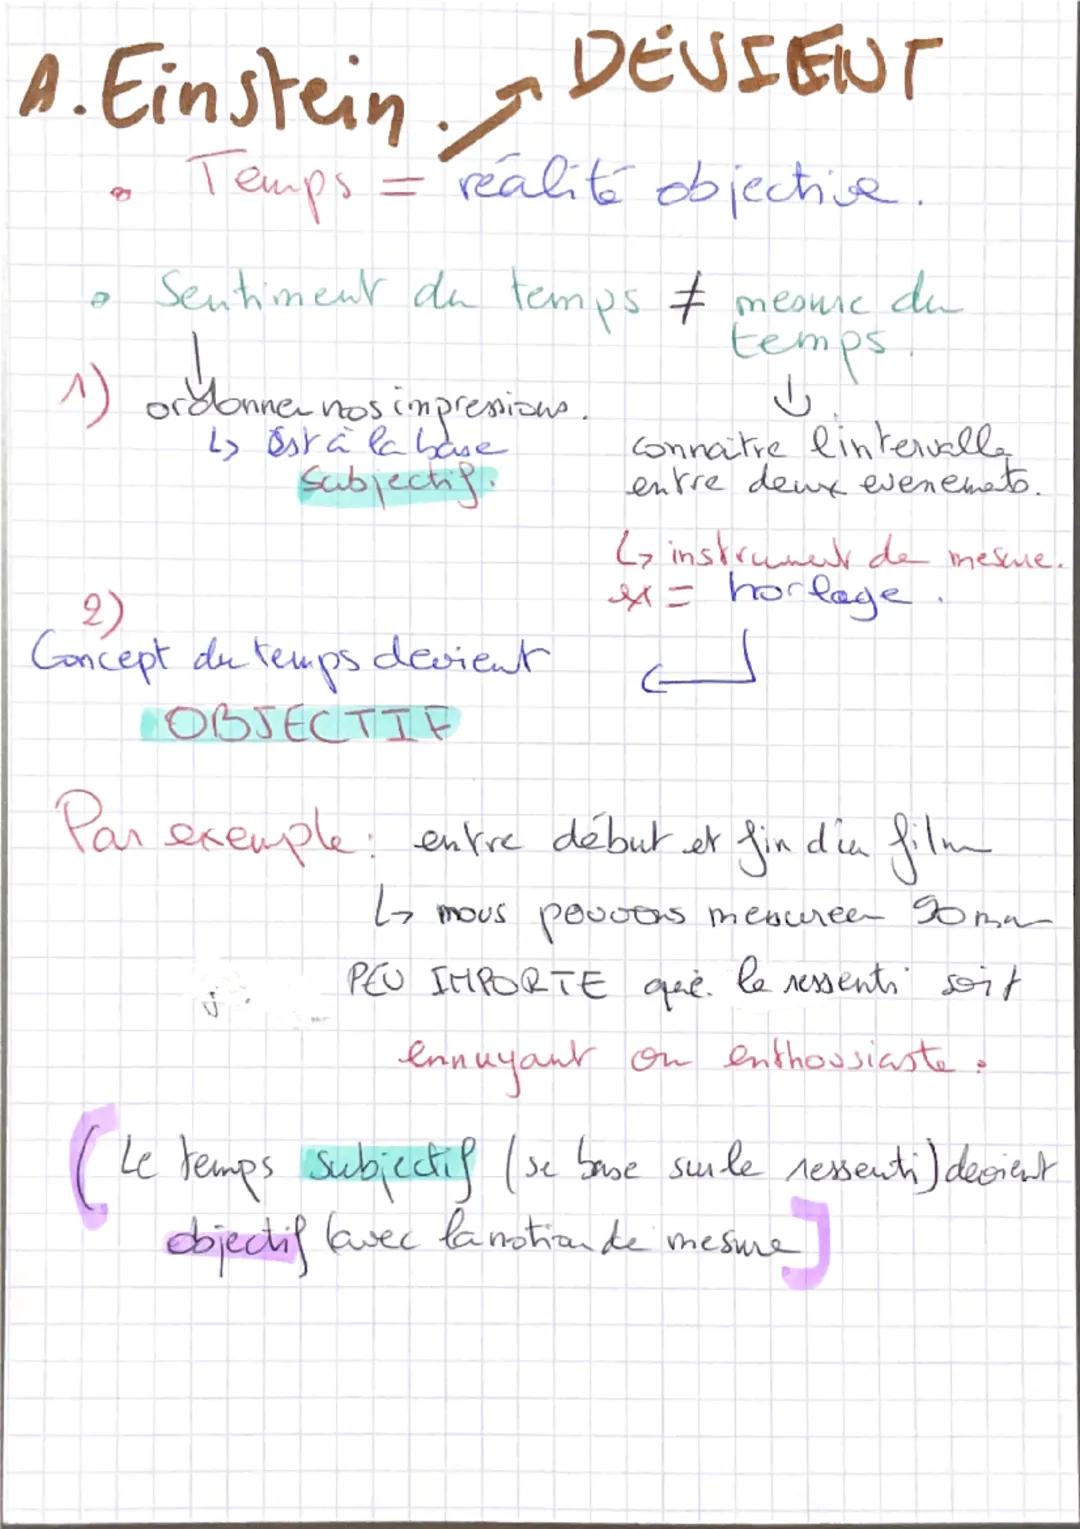 A. Einstein. ↗ DEVIENT
• Temps = réalité objective.
• Sentiment du temps ≠ mesure du
temps.
1) ordonner nos impressions.
↳ Est à la base
subjectif.
connaître l'intervalle
entre deux evenements.
↳ instrument de mesure.
ex = horloge.
2)
Concept du temps devient
OBJECTIF
Par exemple: entre début et fin d'un film
↳ nous pouvons mesurer 90 mn
PEU IMPORTE que le ressenti soit
ennuyant ou enthousiaste.
(Le temps subjectif (se base sur le ressenti) devient
objectif (avec la notion de mesure)